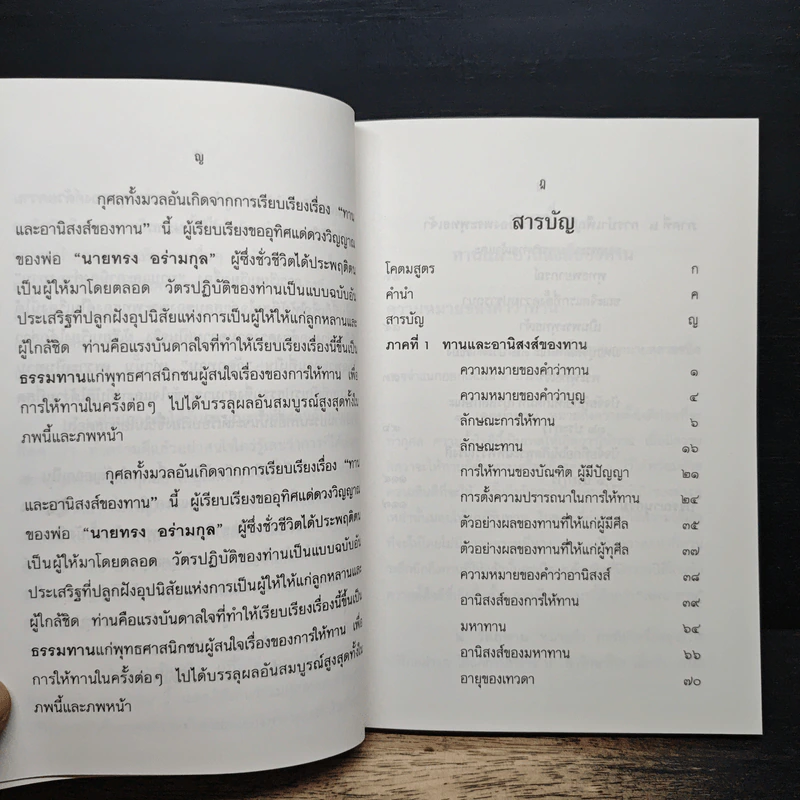 ญ
กุศลทั้งมวลอันเกิดจากการเรียบเรียงเรื่อง “ทาน
และอานิสงส์ของทาน” นี้ ผู้เรียบเรียงขออุทิศแด่ดวงวิญญาณ
ของพ่อ “นายทรง อร่ามกุล” ผู้ซึ่งชั่วชีวิตได้ประพฤติตน
เป็นผู้ให้มาโดยตลอด วัตรปฏิบัติของท่านเป็นแบบฉบับอัน
ประเสริฐที่ปลูกฝังอุปนิสัยแห่งการเป็นผู้ให้ให้แก่ลูกหลานและ
ผู้ใกล้ชิด ท่านคือแรงบันดาลใจที่ทำให้เรียบเรียงเรื่องนี้ขึ้นเป็น
ธรรมทานแก่พุทธศาสนิกชนผู้สนใจเรื่องของการให้ทาน เพื่อ
การให้ทานในครั้งต่อๆ ไปได้บรรลุผลอันสมบูรณ์สูงสุดทั้งใน
ภพนี้และภพหน้า
กุศลทั้งมวลอันเกิดจากการเรียบเรียงเรื่อง “ทาน
และอานิสงส์ของทาน” นี้ ผู้เรียบเรียงขออุทิศแด่ดวงวิญญาณ
ของพ่อ “นายทรง อร่ามกุล” ผู้ซึ่งชั่วชีวิตได้ประพฤติตน
เป็นผู้ให้มาโดยตลอด วัตรปฏิบัติของท่านเป็นแบบฉบับอัน
ประเสริฐที่ปลูกฝังอุปนิสัยแห่งการเป็นผู้ให้ให้แก่ลูกหลานและ
ผู้ใกล้ชิด ท่านคือแรงบันดาลใจที่ทำให้เรียบเรียงเรื่องนี้ขึ้นเป็น
ธรรมทานแก่พุทธศาสนิกชนผู้สนใจเรื่องของการให้ทาน เพื่อ
การให้ทานในครั้งต่อๆ ไปได้บรรลุผลอันสมบูรณ์สูงสุดทั้งใน
ภพนี้และภพหน้า
สารบัญ
โคตมสูตร ก
คำนำ ค
สารบัญ ญ
ภาคที่ 1 ทานและอานิสงส์ของทาน
ความหมายของคำว่าทาน ๑
ความหมายของคำว่าบุญ ๔
ลักษณะการให้ทาน ๖
ลักษณะทาน ๑๖
การให้ทานของบัณฑิต ผู้มีปัญญา ๒๑
การตั้งความปรารถนาในการให้ทาน ๒๔
ตัวอย่างผลของทานที่ให้แก่ผู้มีศีล ๓๕
ตัวอย่างผลของทานที่ให้แก่ผู้ทุศีล ๓๗
ความหมายของคำว่าอานิสงส์ ๓๘
อานิสงส์ของการให้ทาน ๓๙
มหาทาน ๖๔
อานิสงส์ของมหาทาน ๖๖
อายุของเทวดา ๗๐